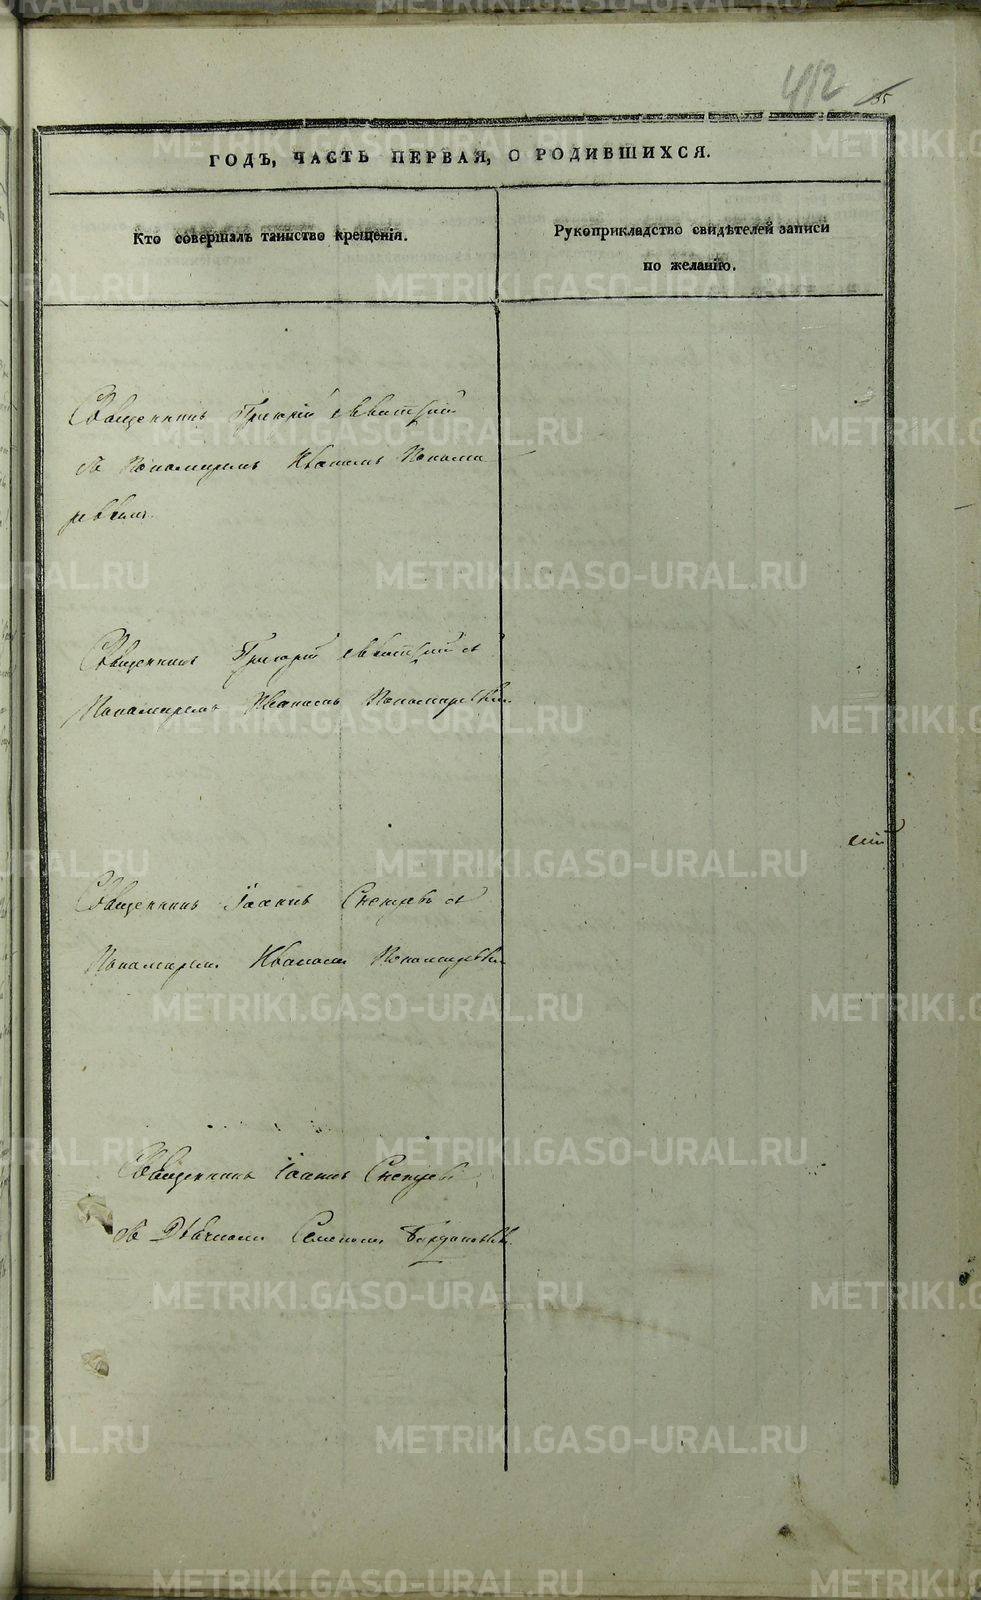 412
35
ГОДЪ, ЧАСТЬ ПЕРВАЯ, О РОДИВШИХСЯ.
Кто совершалъ таинство крещенія.
Рукоприкладство свидѣтелей записи
по желанію.
Священникъ Григорій
съ Пономаремъ Иваномъ Понома
ревымъ.
Священникъ Григорій съ
Пономаремъ Иваномъ Пономаревым
Священникъ Іоаннъ съ
Пономаремъ Иваномъ Пономаревым
Священникъ Іоаннъ
съ Дьячкомъ Семеномъ
METRIKI.GASO-URAL.RU